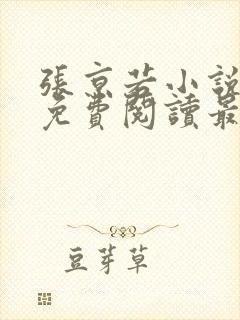 張京若小說
免費閱讀最
豆芽草